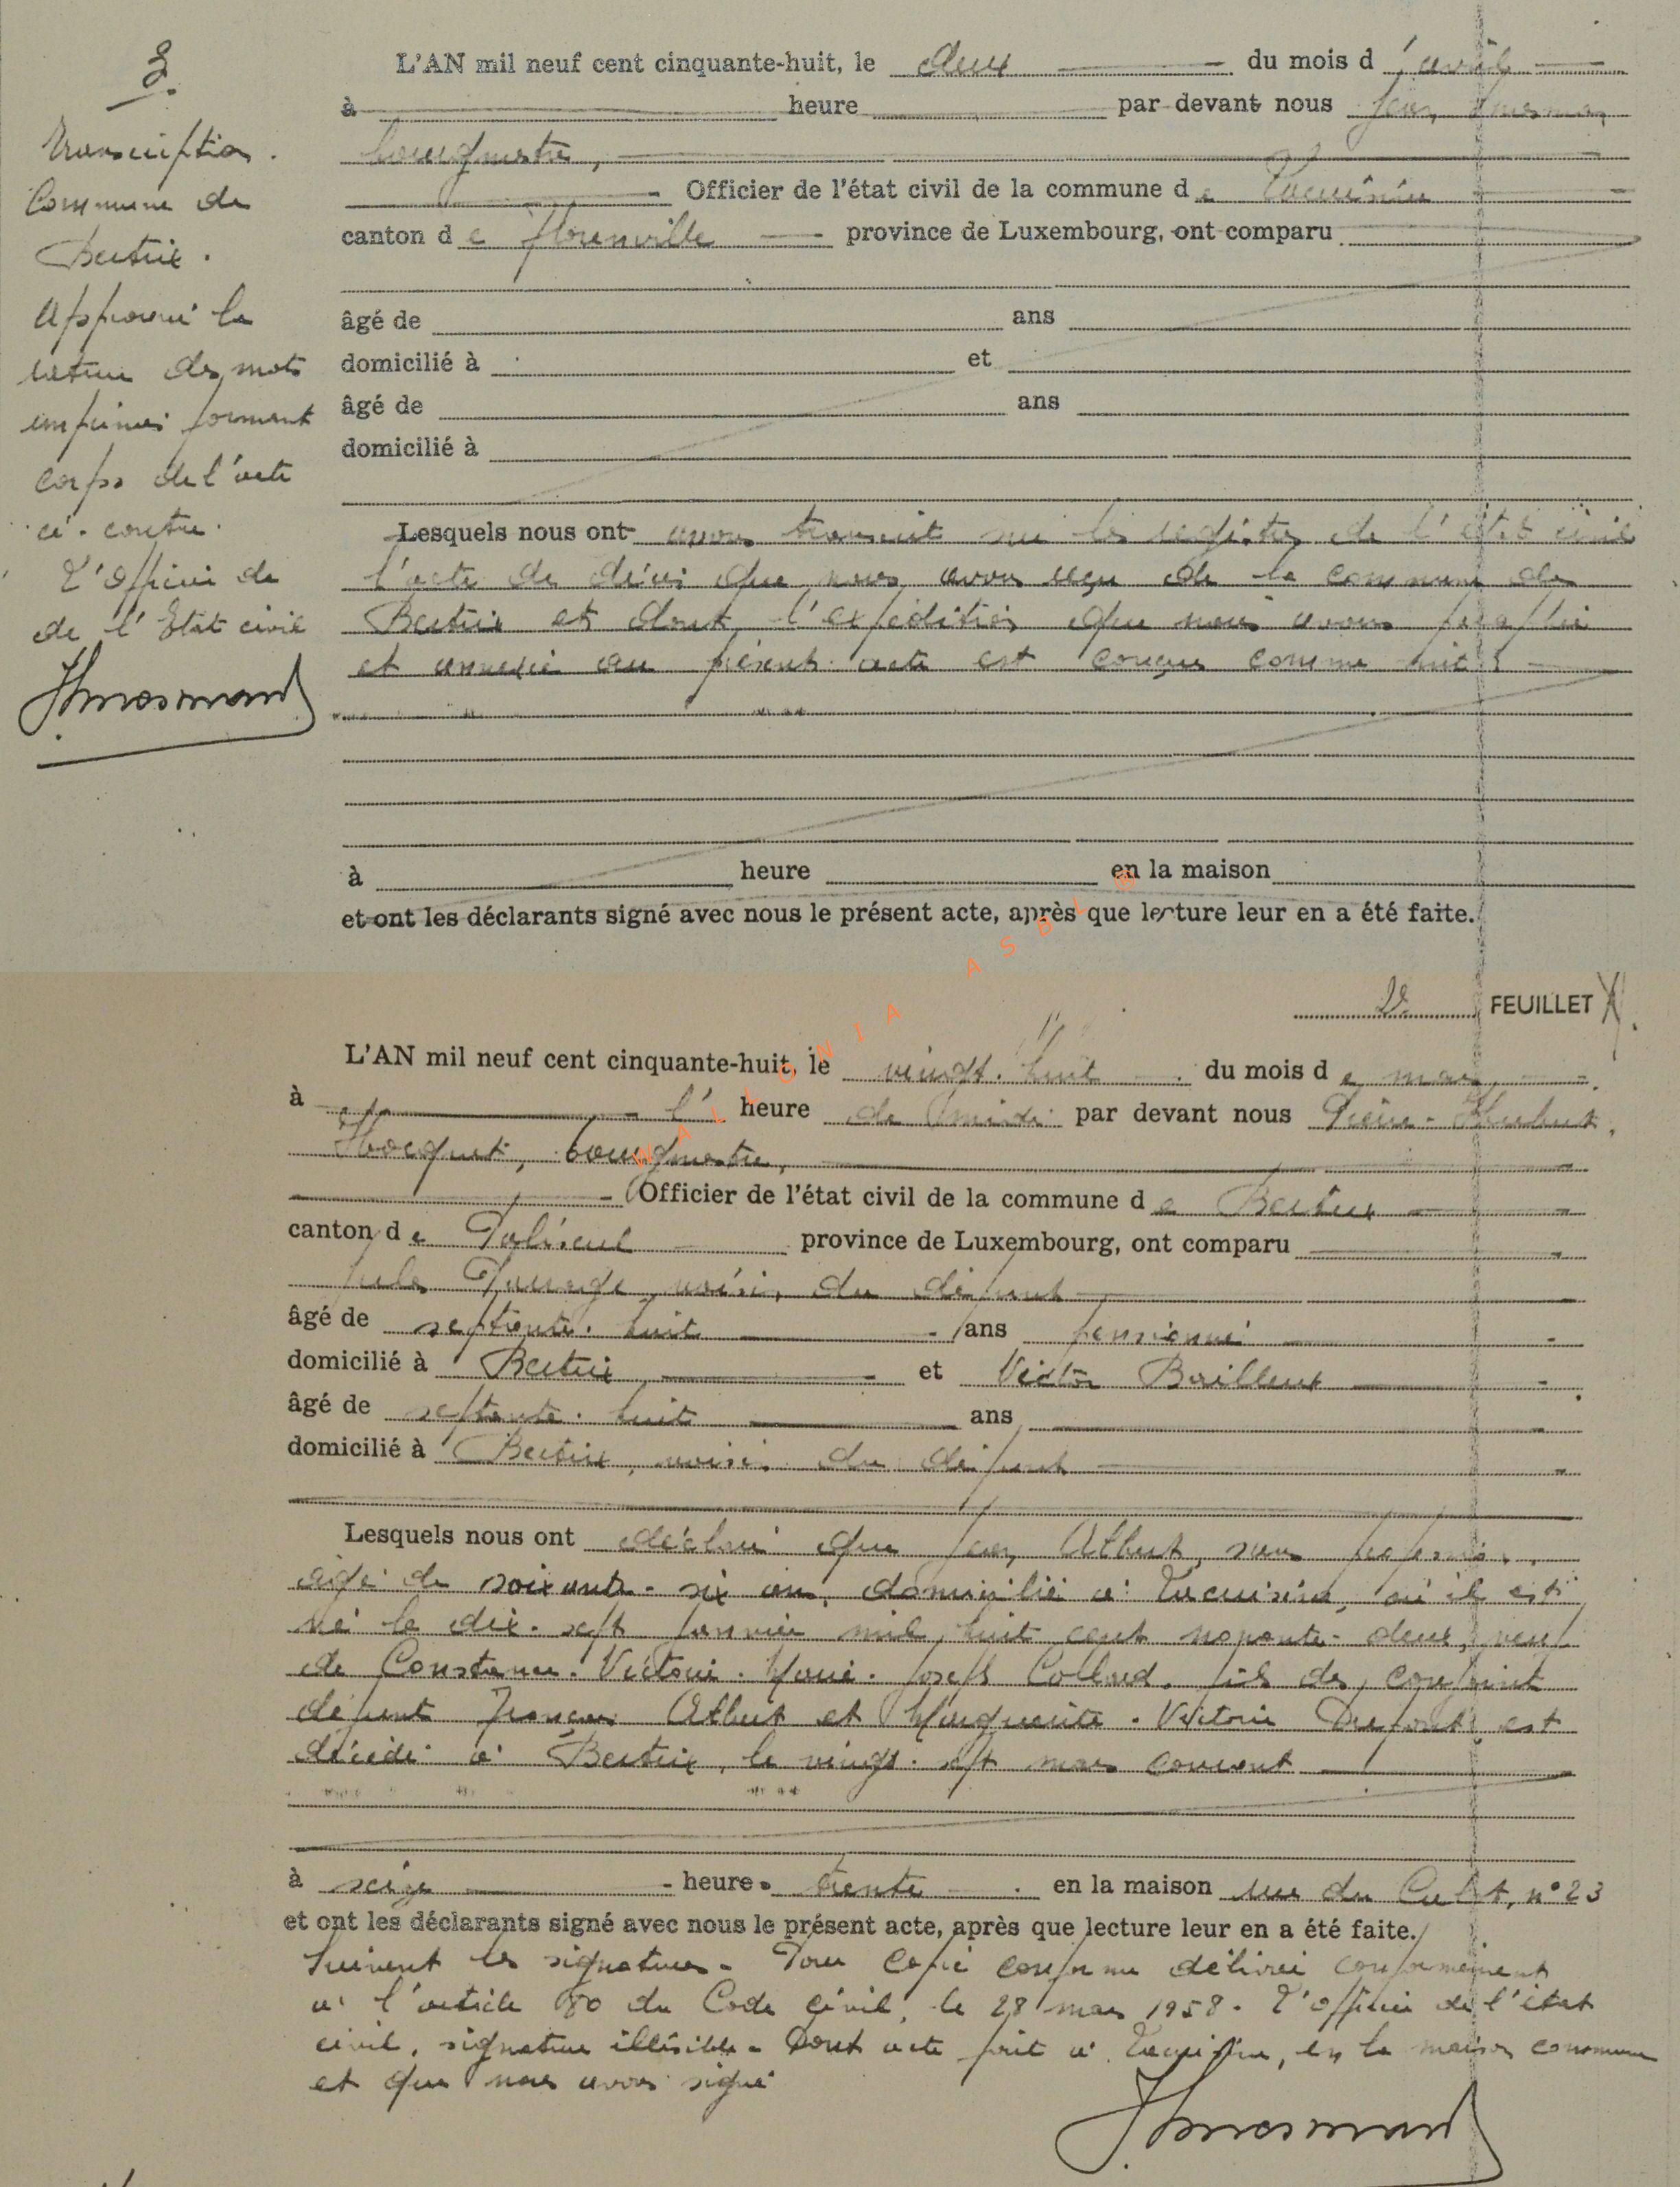 3.
Transcription.
Commune de
Bertrix.
Approuvé la
rature des mots
imprimés formant
corps de l'acte
ci-contre.
L'Officier de
de l'Etat civil
L'AN mil neuf cent cinquante-huit, le deux du mois d'avril
à heure par devant nous Jean
bourgmestre,
Officier de l'état civil de la commune de Lacuisine
canton de Florenville province de Luxembourg, ont comparu
âgé de ans
domicilié à et
âgé de ans
domicilié à
Lesquels nous ont avons transcrit sur les registres de l'état civil
l'acte de décès que nous avons reçu de la commune de
Bertrix et dont l'expédition que nous avons
et annexée au présent acte est conçue comme suit :
à heure en la maison
et ont les déclarants signé avec nous le présent acte, après que lecture leur en a été faite.
WALLONIA ASBL
2e FEUILLET
L'AN mil neuf cent cinquante-huit, le vingt-huit du mois de mars
à l' heure de midi par devant nous Pierre-Hubert
Hocquet, bourgmestre,
Officier de l'état civil de la commune de Bertrix
canton de Paliseul province de Luxembourg, ont comparu
Jules voisin du défunt
âgé de septante-huit ans pensionné
domicilié à Bertrix et Victor Bailleux
âgé de septante-huit ans
domicilié à Bertrix, voisin du défunt
Lesquels nous ont déclaré que Jean Albert, sans profession,
âgé de soixante-six ans, domicilié à Lacuisine, où il est
né le dix-sept janvier mil huit cent nonante-deux, veuf
de Constance-Victoire-Marie-Joseph Collard, fils des conjoint
défunt François Albert et Marguerite-Victoire est
décédé à Bertrix, le vingt-sept mars courant
à seize heures trente en la maison rue du Culot, n° 23
et ont les déclarants signé avec nous le présent acte, après que lecture leur en a été faite.
Suivent les signatures. Pour copie conforme délivrée conformément
à l'article 80 du Code civil, le 28 mars 1958. L'officier de l'état
civil, signature illisible. Dont acte fait à Lacuisine, en la maison commune
et que nous avons signé